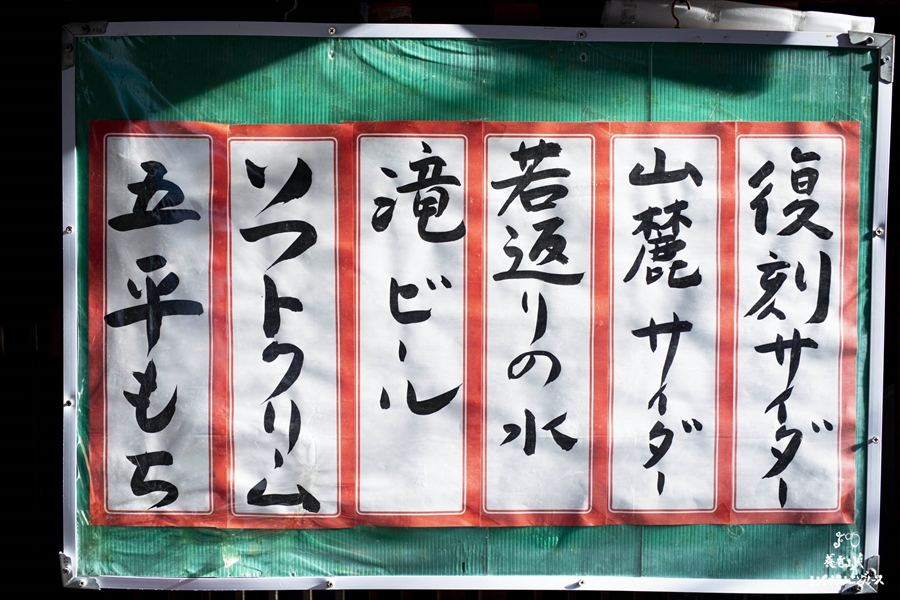 復刻サイダー
山麓サイダー
若返りの水
滝ビール
ソフトクリーム
五平もち